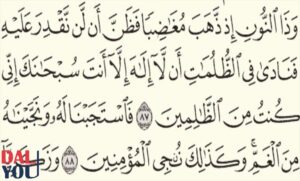 وَذَا ٱلنُّونِ إِذ ذَّهَبَ مُغَـٰضِبًا فَظَنَّ أَن لَّن نَّقْدِرَ عَلَيْهِ
فَنَادَىٰ فِى ٱلظُّلُمَـٰتِ أَن لَّآ إِلَـٰهَ إِلَّآ أَنتَ سُبْحَـٰنَكَ إِنِّى
كُنتُ مِنَ ٱلظَّـٰلِمِينَ ٨٧ فَٱسْتَجَبْنَا لَهُۥ وَنَجَّيْنَـٰهُ
مِنَ ٱلْغَمِّ ۚ وَكَذَٰلِكَ نُـۨجِى ٱلْمُؤْمِنِينَ ٨٨
DAL
YOU